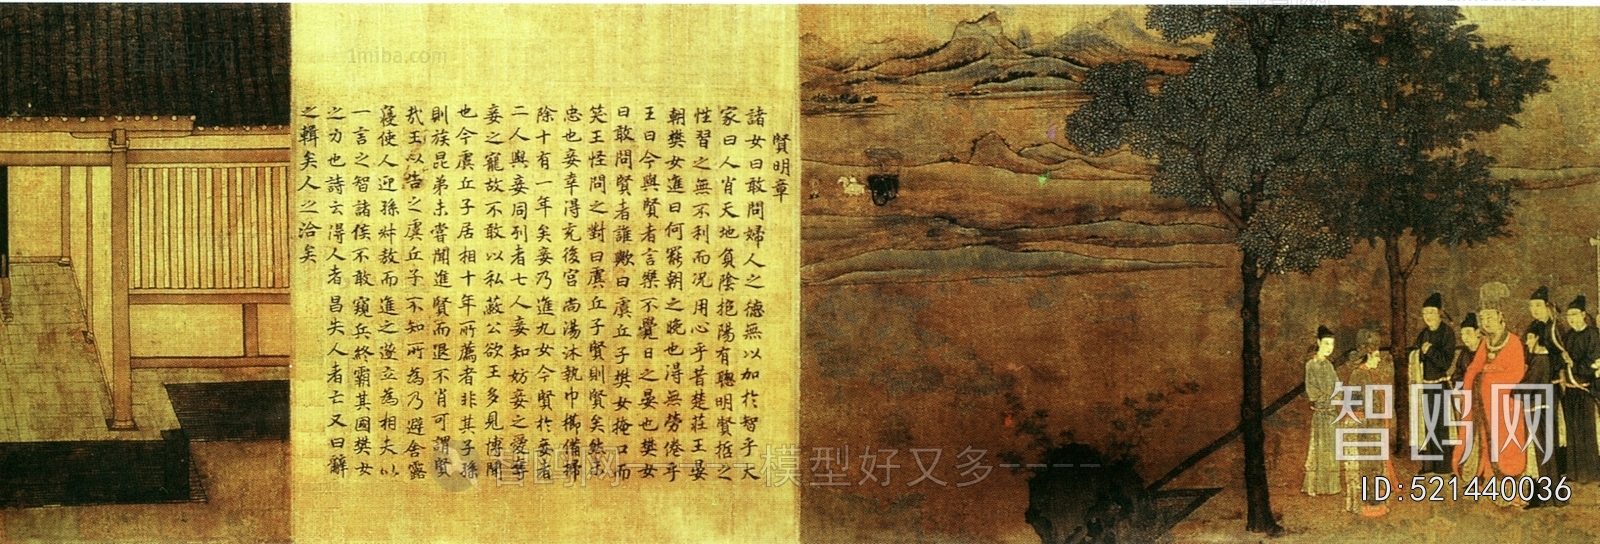 賢明章
諸女曰敢問婦人之德無以加於智乎大
家曰人肖天地負陰抱陽有聰明賢哲之
性習之無不利而況用心乎昔楚莊王晏
朝樊女進曰何罷朝之晚也得無勞倦乎
王曰今與賢者言樂不覺日之晏也樊女
曰敢問賢者誰歟曰虞丘子樊女掩口而
笑王怪問之對曰虞丘子賢則賢矣然未
忠也妾幸得充後宮尚湯沐執巾櫛備掃
除十有一年矣妾乃進九女今賢於妾者
二人與妾同列者七人妾知妨妾之愛奪
妾之寵故不敢以私蔽公欲王多見博聞
也今虞丘子居相十年所薦者非其子孫
則族昆弟未嘗聞進賢而退不肖可謂賢
哉王以告之虞丘子不知所為乃避舍露
寢使人迎孫叔敖而進之遂立為相夫以
一言之智諸侯不敢窺兵終霸其國樊女
之力也詩云得人者昌失人者亡又曰辭
之輯矣人之洽矣
智鸥网
1miba.com
智鸥网----模型好又多----
智鸥网
ID:521440036